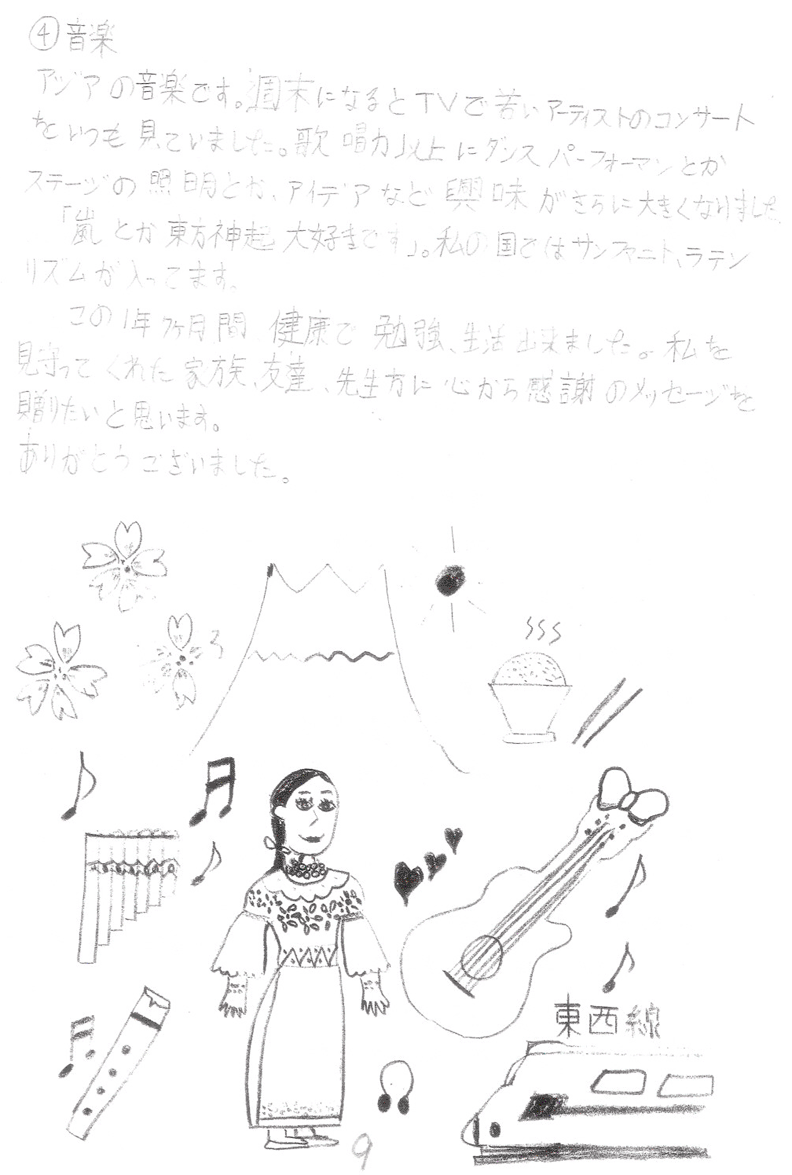 ④音楽
アジアの音楽です。週末になるとTVで若いアーティストのコンサート
をいつも見ていました。歌唱力以上にダンスパーフォーマンとか
ステージの照明とか、アイデアなど興味がさらに大きくなりました
「嵐とか東方神起大好きです」。私の国ではサンファニト、ラテン
リズムが入ってます。
この1年7ヶ月間 健康で勉強、生活出来ました。私を
見守ってくれた家族、友達、先生方に心から感謝のメッセージを
贈りたいと思います。
ありがとうございました。
東西線
9